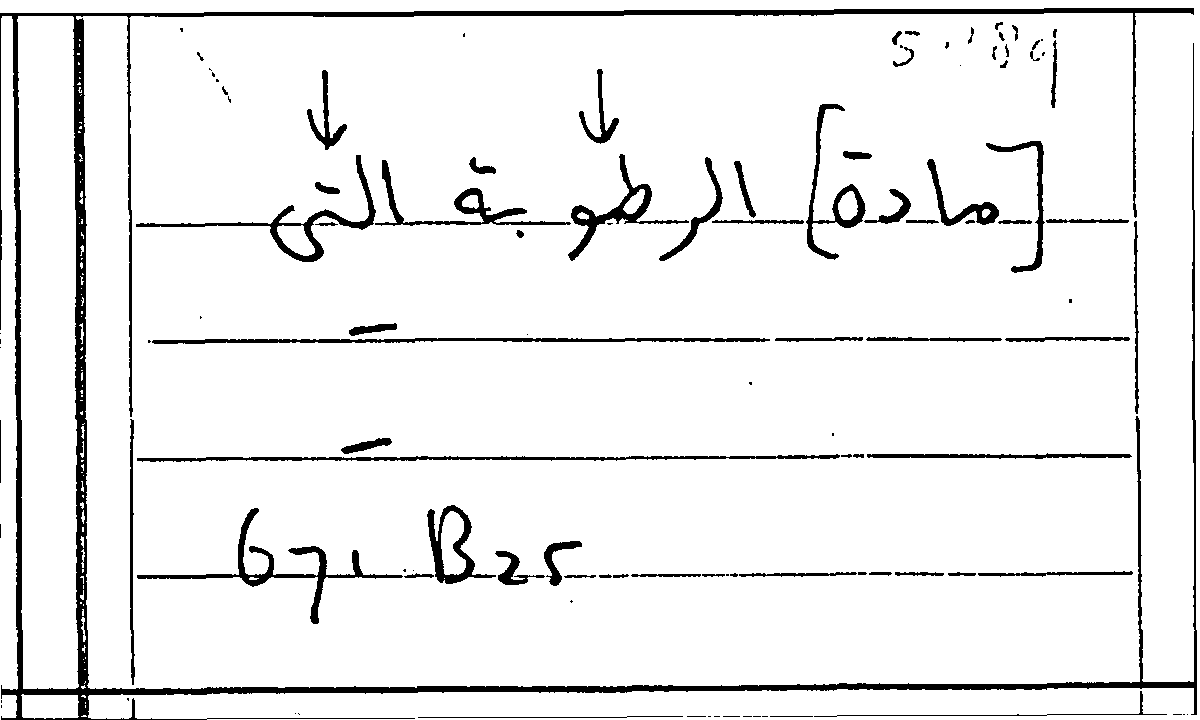 [مادة] الرطوبة التى
671 B25